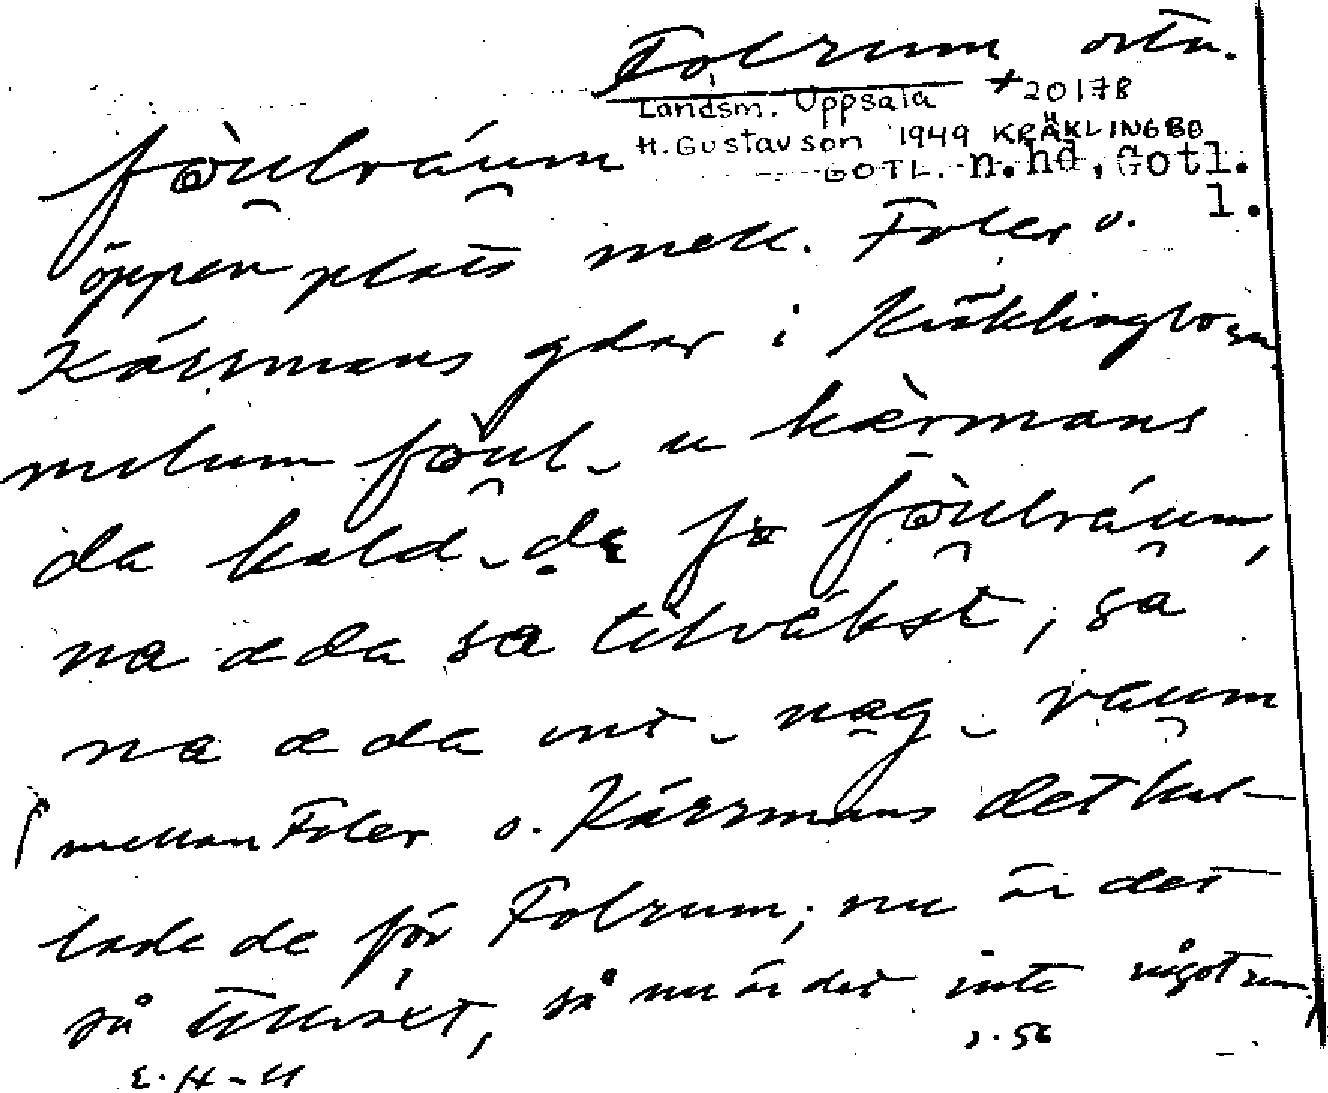 Folrum ortn.
Landsm. Uppsala +20178
H. Gustavson 1949 KRÄKLINGBO
GOTL. n.hd, Gotl.
l.
fòulráum
öppen plats mell. Foler o.
Kärrmans gdar i Kräklingbo sn
melum foul u kærmans
da kald de fɶ fòulráum,
na æ da sa tilväkst, sa
na æ da int nag raum
mellan Foler o. Kärrmans det kal-
lade de för Folrum; nu är det
så tillväxt, så nu är det inte något rum
s. 56